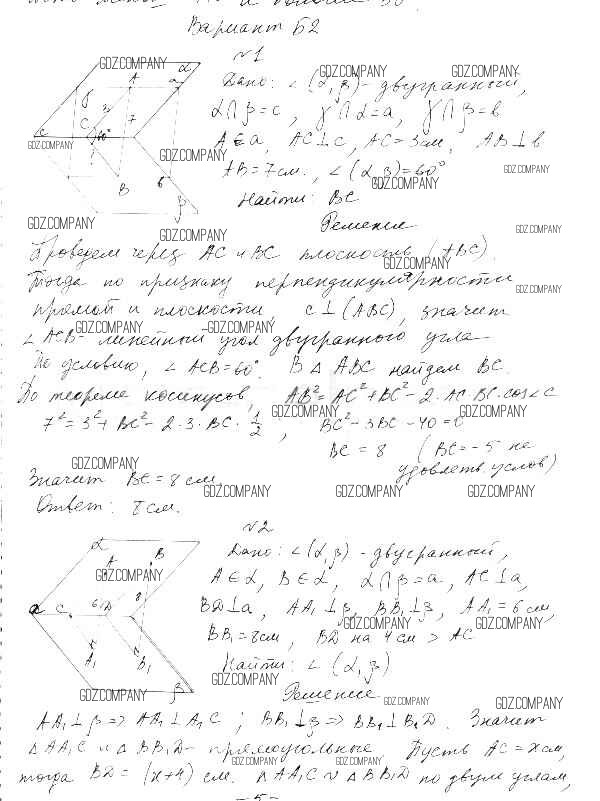 Вариант Б2
№1
Дано: ∠(α,β) - двугранный,
α∩β=c, γ∩α=a, γ∩β=b
A∈a, AC⊥c, AC=3см, AB⊥b
AB=7см, ∠(α,β)=60°
Найти: BC
Решение
Проведем через AC и BC плоскость (ABC).
Тогда по признаку перпендикулярности
прямой и плоскости, c⊥(ABC), значит
∠ACB- линейный угол двугранного угла
По условию, ∠ACB=60°. В △ABC найдем BC.
По теореме косинусов, AB²=AC²+BC²-2·AC·BC·cos∠C
7²=3²+BC²-2·3·BC·1/2, BC²-3BC-40=0
BC=8 (BC=-5 не
удовлеть услов)
Значит BC=8см.
Ответ: 8см.
№2
Дано: ∠(α,β) - двугранный,
A∈α, B∈α, α∩β=a, AC⊥a,
BD⊥a, AA₁⊥β, BB₁⊥β, AA₁=6см,
BB₁=8см, BD на 4см > AC
Найти: ∠(α,β)
Решение
AA₁⊥β=>AA₁⊥A₁C; BB₁⊥β=>BB₁⊥B₁D. Значит
△AA₁C и △BB₁D- прямоугольные Пусть AC=xсм,
тогда BD=(x+4) см. △AA₁C∾△BB₁D по двум углам,
-5-
GDZ.COMPANY